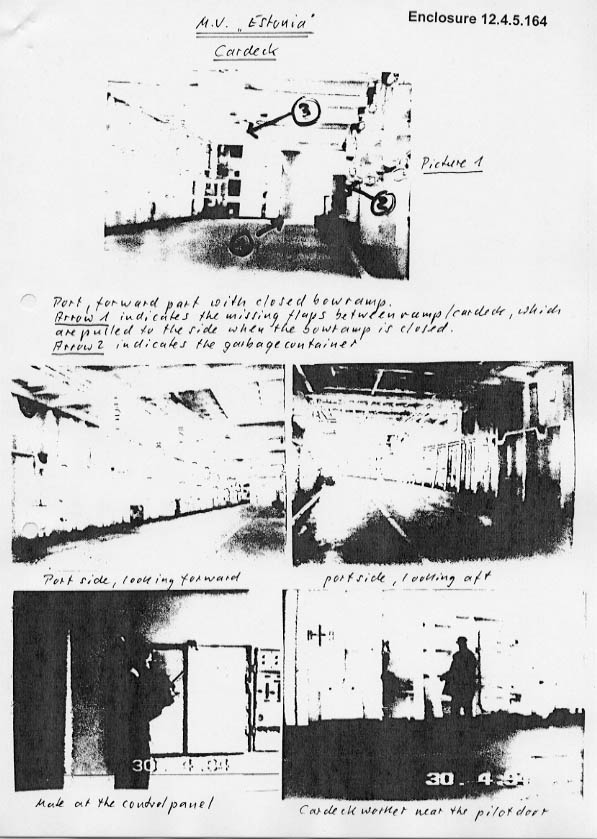 M.V. „Estonia"
Enclosure 12.4.5.164
Cardeck
3
Picture 1
2
1
Port, forward part with closed bowramp.
Arrow 1 indicates the missing flaps between ramp/cardeck, which
are pulled to the side when the bowramp is closed.
Arrow 2 indicates the garbagecontainer
Port side, looking forward
portside, looking aft
30.4.94
30.4.9
Mate at the controlpanel
Cardeckworker near the pilotdoor